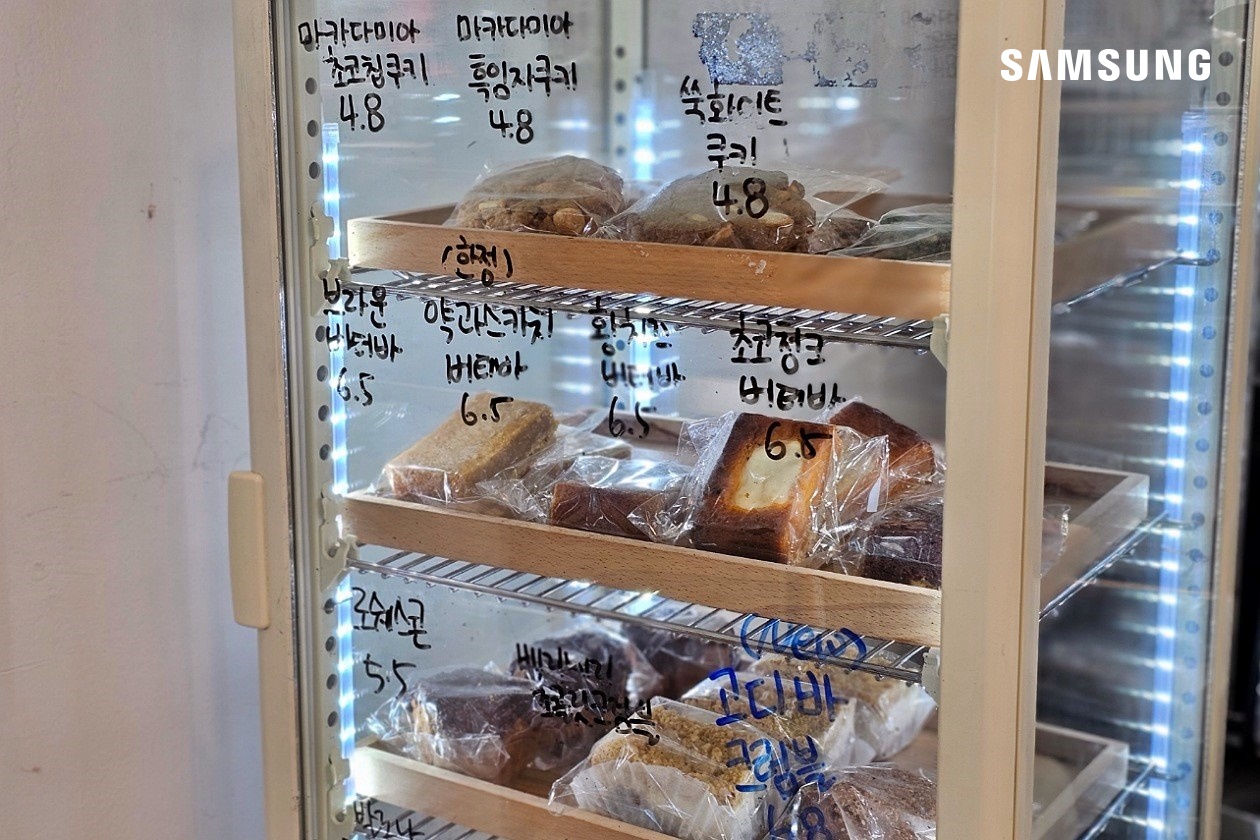 마카다미아
초코칩쿠키
4.8
마카다미아
흑임자쿠키
4.8
쑥화이트
쿠키
4.8
SAMSUNG
브라운
버터바
6.5
(한정)
약과스카치
버터바
6.5
황치즈
버터바
6.5
초코청크
버터바
6.5
로쉐스콘
5.5
(New)
고디바
크럼블
4.8